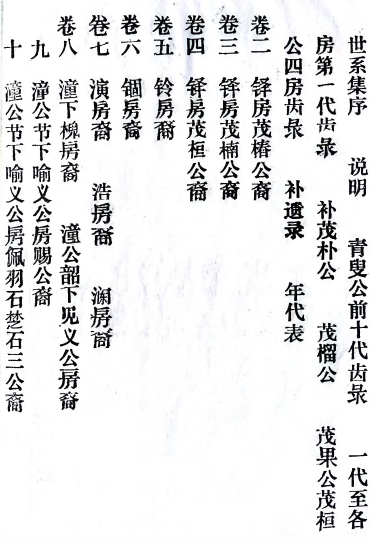 世系集序 说明 青叟公前十代齿录 一代至各
房第一代齿录 补茂朴公 茂榴公 茂果公茂桓
公四房齿录 补遗录 年代表
卷二 铎房茂椿公裔
卷三 铎房茂楠公裔
卷四 铎房茂桓公裔
卷五 铃房裔
卷六 锢房裔
卷七 演房裔 浩房裔 澜房裔
卷八 潼下槐房裔 潼公韶下见义公房裔
九 潼公节下喻义公房赐公裔
十 潼公节下喻义公房佩羽石楚石三公裔